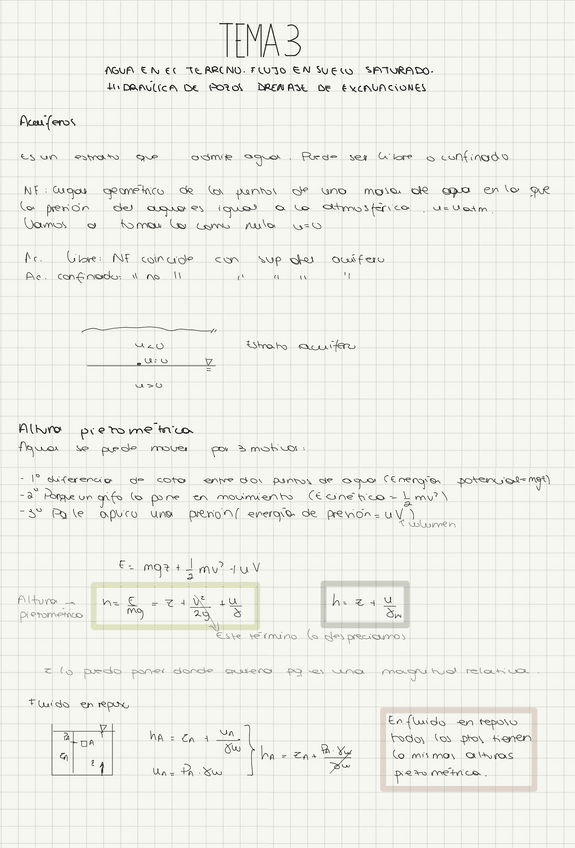 TEMA 3
AGUA EN EL TERRENO. FLUJO EN SUELO SATURADO.
HIDRAÚLICA DE POZOS DRENAJE DE EXCAVACIONES
Acuíferos
Es un estrato que admite agua. Puede ser libre o confinado
NF: Lugar geométrico de los puntos de una masa de agua en lo que
la presión del agua es igual a la atmosférica. u=uatm.
Vamos a tomarla como nula u=0
Ac. libre: NF coincide con sup del acuífero
Ac. confinado: " no " " " " "
u<0
Estrato acuífero
u=0
u>0
Altura piezométrica
Agua se puede mover por 3 motivos:
- 1º diferencia de cota entre dos puntos de agua (Energía potencial=mgz)
- 2º Porque un grifo la pone en movimiento (E cinética = 1/2 mv²)
- 3º Pq le aplico una presión (energía de presión = uV)
volumen
E = mgz + 1/2 mv² + uV
Altura piezométrica
h = E/mg = z + v²/2g + u/γ
h = z + u/γw
Este término lo despreciamos
z lo puedo poner donde quiera pq es una magnitud relativa.
Fluido en reposo
PA A
zA z
hA = zA + uA/γw
uA = PA · γw
hA = zA + PA·γw/γw
En fluido en reposo
todos los ptos tienen
la misma altura
piezométrica.